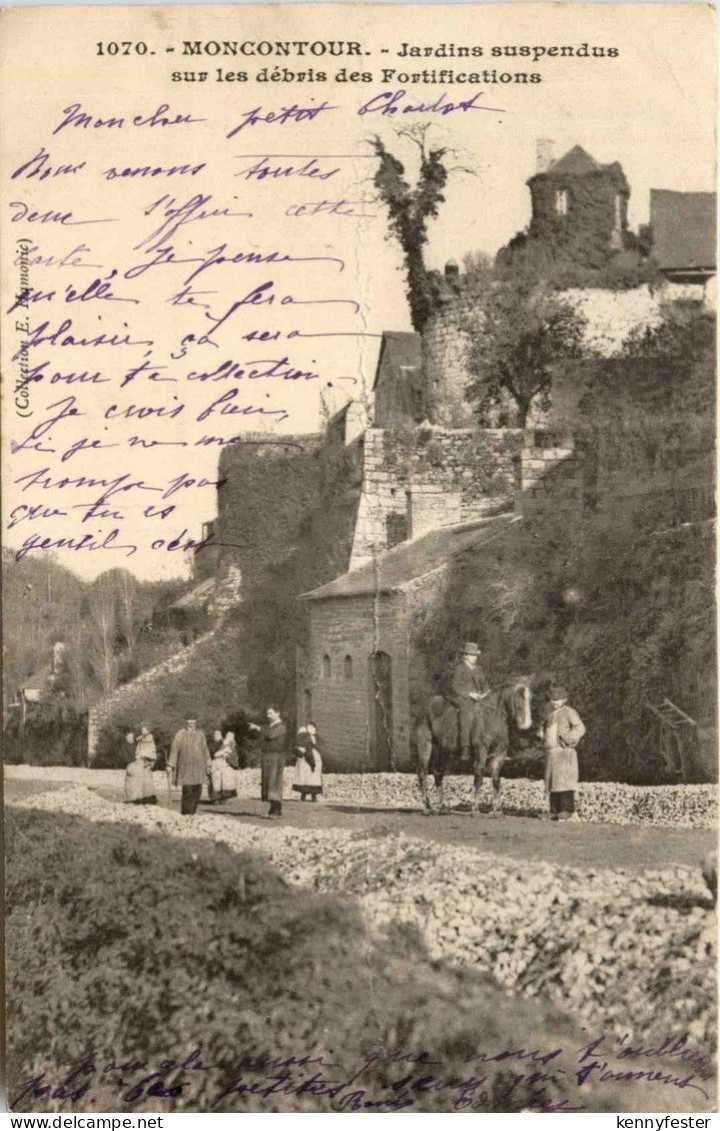 1070. - MONCONTOUR. - Jardins suspendus
sur les débris des Fortifications
(Collection E. Hamonic)
Moncher petit Charlot
Nous venons toutes
deux t'offrir cette
carte, Je pense
qu'elle te fera
plaisir, ça sera
pour ta collection.
Je crois bien
si je ne me
trompe pas
que tu es
gentil c'est
pour cela aussi que nous t'oublierons
pas. Les petites sœurs qui t'aiment
kennyfester